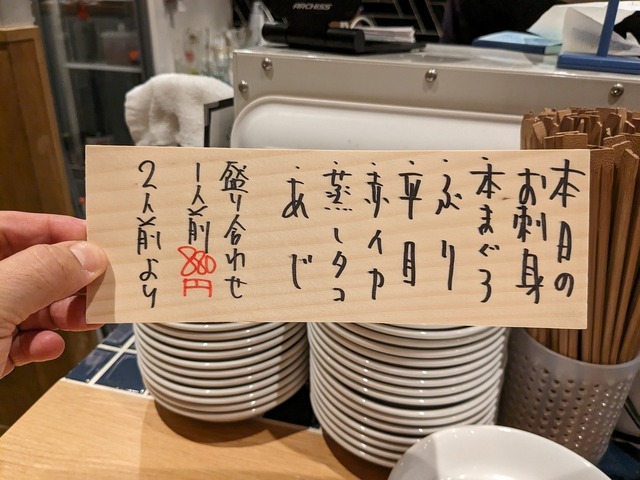 本日の
お刺身
・本まぐろ
・ぶり
・平目
・赤イカ
・蒸しタコ
・あじ
盛り合わせ
1人前 880円
2人前より
ARCHISS